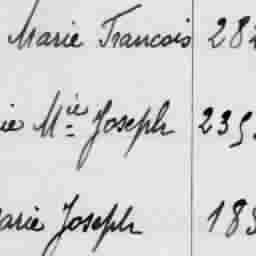 Marie Francois 282
ie Mie Joseph 235
arie Joseph 183